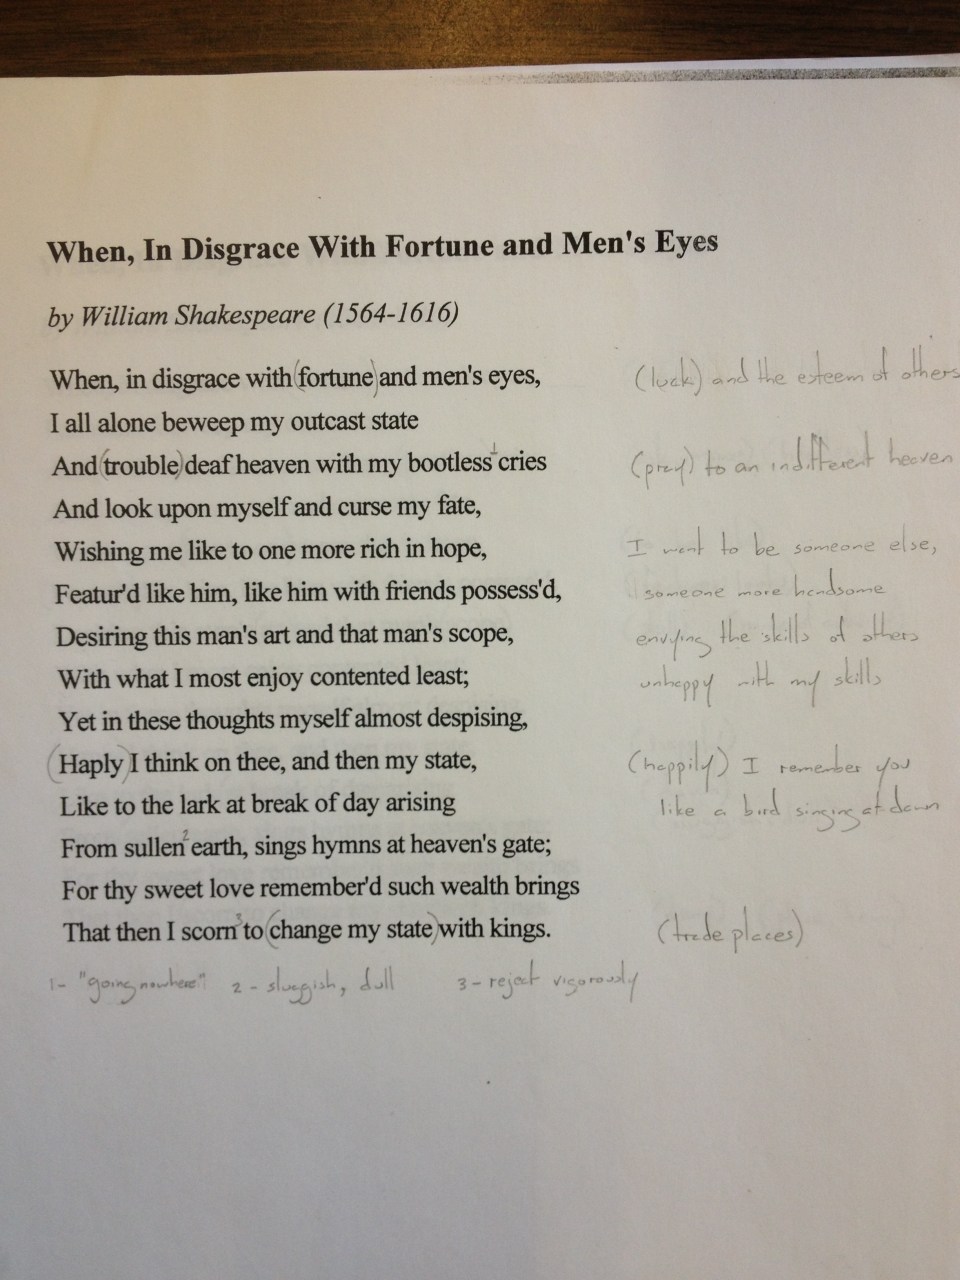 When, In Disgrace With Fortune and Men's Eyes
by William Shakespeare (1564-1616)
When, in disgrace with (fortune) and men's eyes, (luck) and the esteem of others
I all alone beweep my outcast state
And (trouble) deaf heaven with my bootless¹ cries (pray) to an indifferent heaven
And look upon myself and curse my fate,
Wishing me like to one more rich in hope, I want to be someone else,
Featur'd like him, like him with friends possess'd, someone more handsome
Desiring this man's art and that man's scope, envying the skills of others
With what I most enjoy contented least; unhappy with my skills
Yet in these thoughts myself almost despising,
(Haply) I think on thee, and then my state, (happily) I remember you
Like to the lark at break of day arising like a bird singing at dawn
From sullen² earth, sings hymns at heaven's gate;
For thy sweet love remember'd such wealth brings
That then I scorn³ to (change my state) with kings. (trade places)
1- "going nowhere" 2 - sluggish, dull 3 - reject vigorously